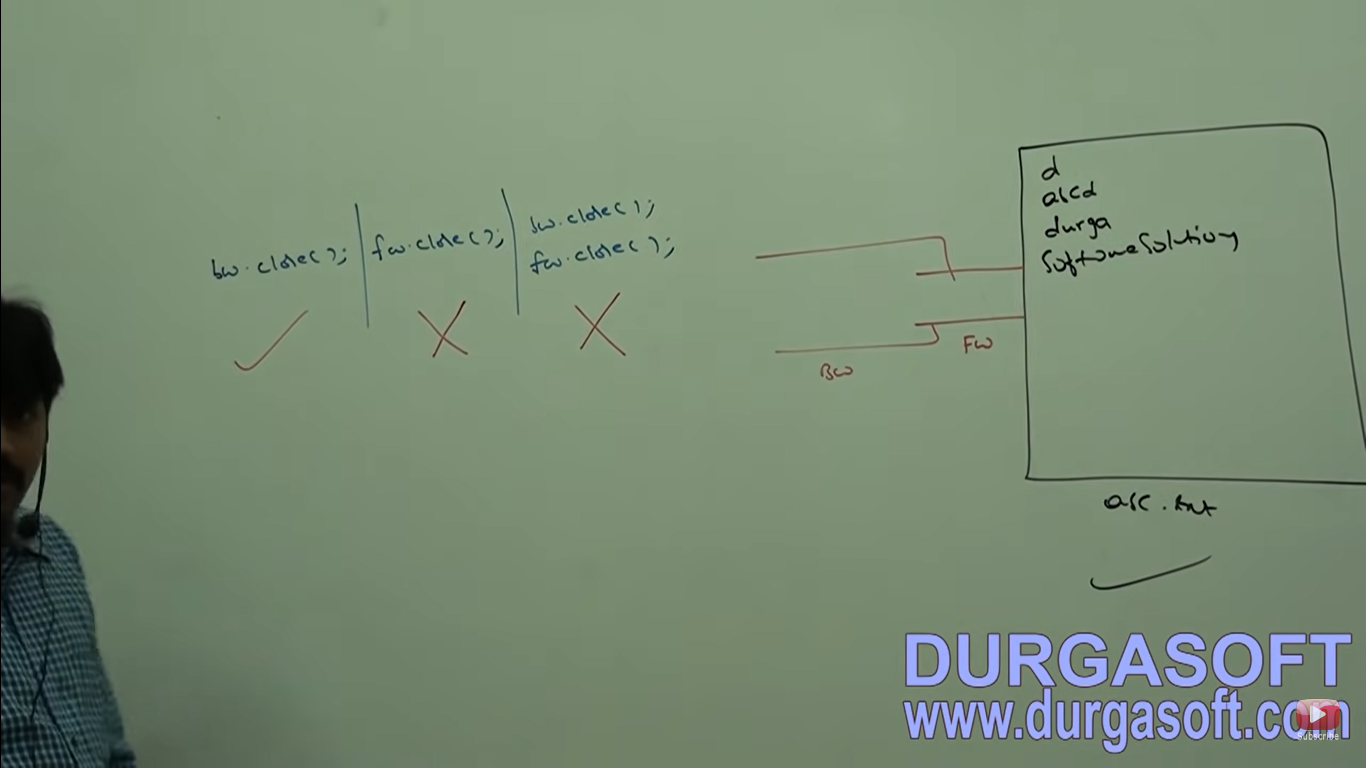 bw.close();
fw.close();
bw.close();
fw.close();
d
abcd
durga
Software Solutions
BW
FW
abc.txt
DURGASOFT
www.durgasoft.com
Subscribe